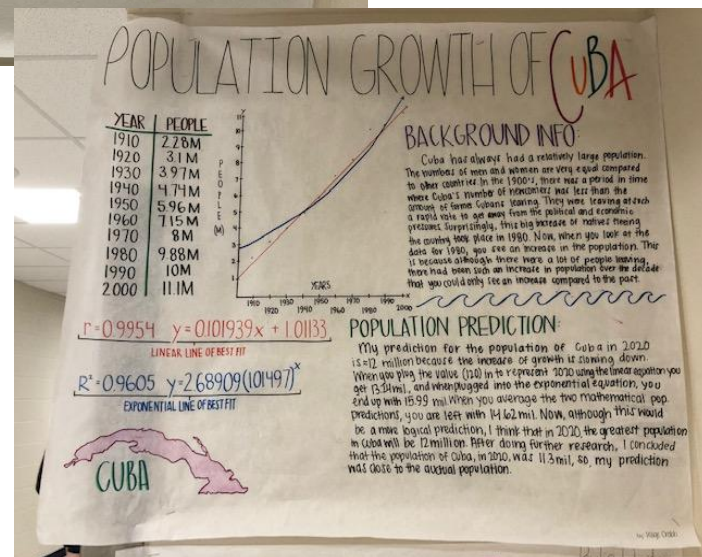 POPULATION GROWTH OF CUBA
YEAR PEOPLE
1910 2.28M
1920 3.1M
1930 3.97M
1940 4.74M
1950 5.96M
1960 7.15M
1970 8M
1980 9.88M
1990 10M
2000 11.1M
PEOPLE (M)
YEARS
1910 1930 1950 1970 1990
1920 1940 1960 1980 2000
BACKGROUND INFO:
Cuba has always had a relatively large population.
The numbers of men and women are very equal compared
to other countries. In the 1900's, there was a period in time
where Cuba's number of newcomers was less than the
amount of former Cubans leaving. They were leaving at such
a rapid rate to get away from the political and economic
pressures. Surprisingly, this big increase of natives fleeing
the country took place in 1980. Now, when you look at the
data for 1980, you see an increase in the population. This
is because although there were a lot of people leaving,
there had been such an increase in population over the decade
that you could only see an increase compared to the past.
r=0.9954 y=0.101939x + 1.01133
LINEAR LINE OF BEST FIT
R²=0.9605 y=2.68909(1.01497)ˣ
EXPONENTIAL LINE OF BEST FIT
CUBA
POPULATION PREDICTION:
My prediction for the population of Cuba in 2020
is ≈12 million because the increase of growth is slowing down.
When you plug the value (120) in to represent 2020 using the linear equation you
get 13.24mil, and when plugged into the exponential equation, you
end up with 15.99 mil. When you average the two mathematical pop.
predictions, you are left with 14.62mil. Now, although this would
be a more logical prediction, I think that in 2020, the greatest population
in Cuba will be 12 million. After doing further research, I concluded
that the population of Cuba, in 2020, was 11.3mil, so, my prediction
was close to the auctual population.